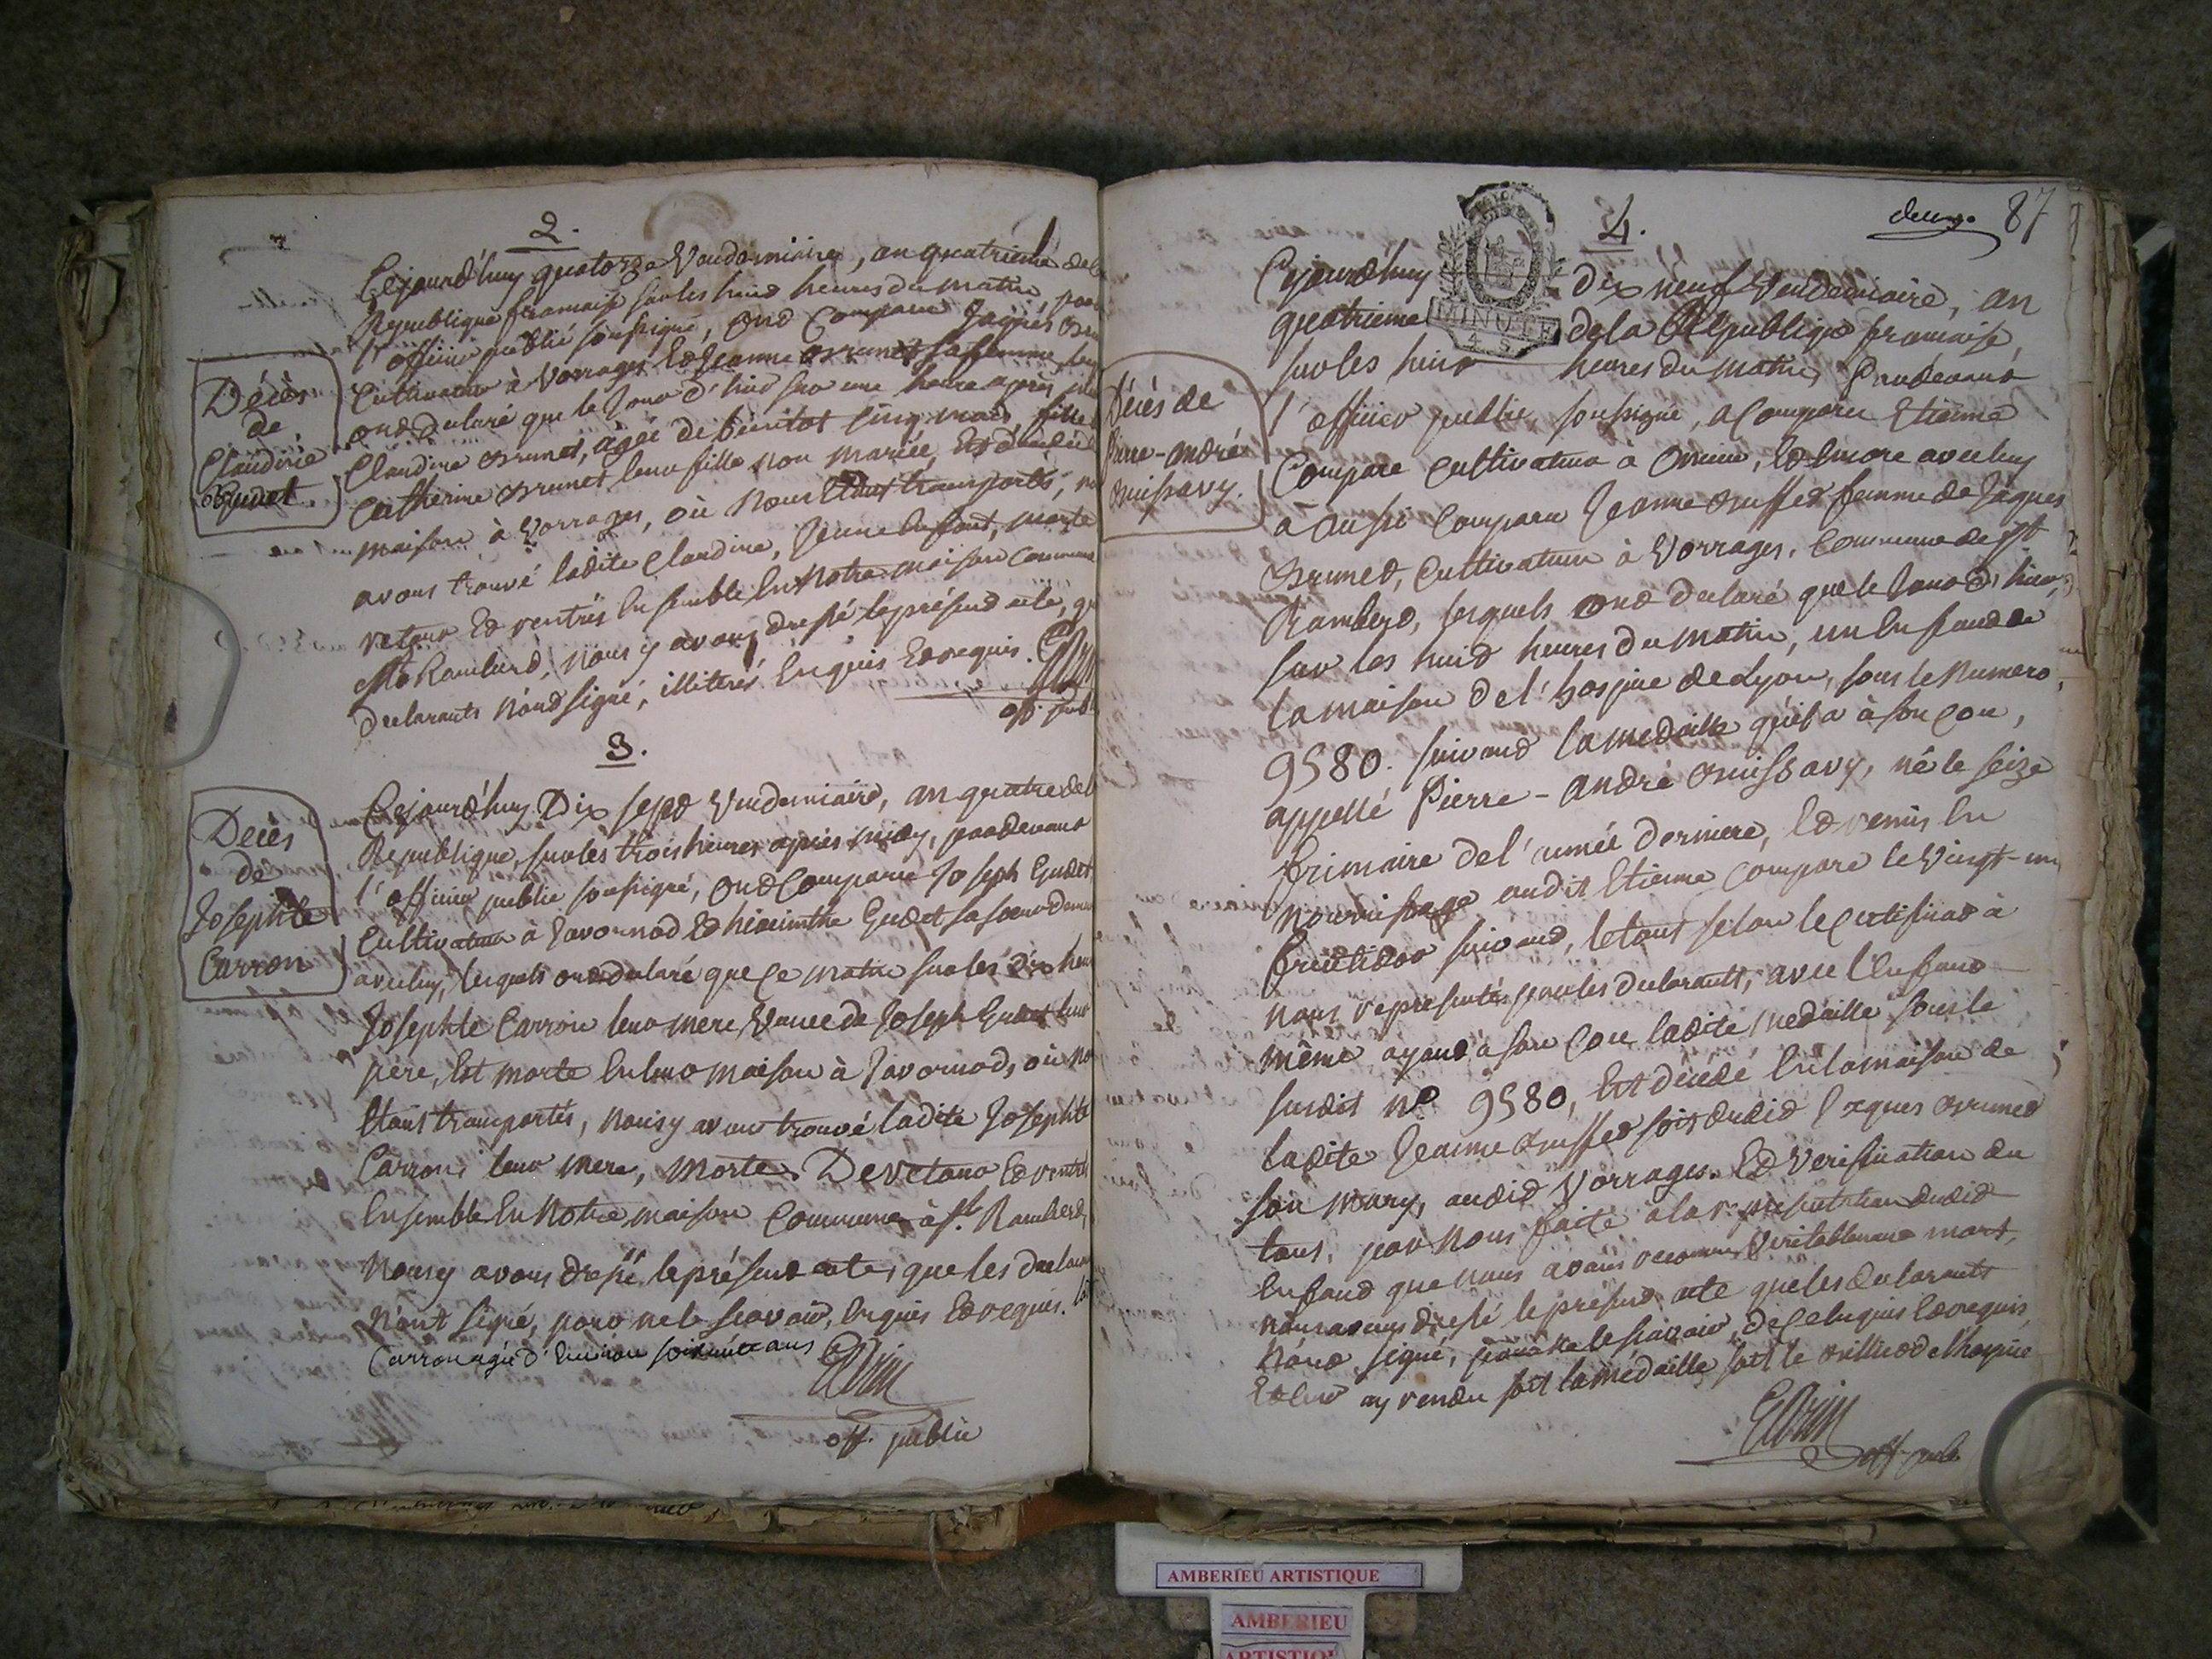 2.
Cejourd'huy quatorze Vendemiaire, an quatrieme de la
Republique francaise sur les huid heures du matin, par
l'officier publié soussigné, ond Comparu Jaques
Cultivateur à Vorrages Et Jeanne Brunet sa femme,
ond declaré que le Jour d'hied sur une heure après
Claudine Brunet, agée de bientot cinq mois, fille
Catherine Brunet leur fille non mariée, Est décédée
maison à Vorrages, où nous Etant transportés,
avons trouvé ladite Claudine, Jeune Enfant, morte
retour Ed rentrés Ensemble En Notre maison Commune
St Ramberd, nous y avons dressé le présend acte,
declarants N'ond signé, illiterés Enquis Ed requis.
off. publ
Décès
de
Claudine
3.
Cejourd'huy Dix sepd Vendemiaire, an quatre de l
Republique, sur les trois heures apres midy, pardevant
l'officier public soussigné, ond Comparu Joseph Gudet
Cultivateur à Javornod Ed hiacinthe Gudet sa soeur
avec luy, lesquels ond declaré que Ce matin sur les dix heu
Josephte Carron leur mere Veuve de Joseph Gudet leur
père, Est morte En leur maison à Javornod, où no
Etant transportés, nous y avons trouvé ladite Josephte
Carron, leur mere, morte. De retour Ed rentrés
Ensemble En Notre maison Commune à St. Ramberd,
Nous y avons dressé le présend acte, que les declarants
N'ont signé, pour ne le scavoir, Enquis Ed requis.
Carron agée d'Environ soixante ans
off. public
Décès
de
Josephte
Carron
deuxe 87
4.
MINUTE
4. S.
Cejourd'huy dix neuf Vendemiaire, an
quatrieme de la Republique francaise,
sur les huid heures du matin, Pardevand
l'officier public soussigné, a Comparu Etienne
Compare Cultivateur à Oncieu, Ed Encore avec luy
a aussi Comparu Jeanne Truffet femme de Jaques
Brunet, Cultivateur à Vorrages, Commune de St
Ramberd, lesquels ond declaré que le Jour d'hier,
sur les huid heures du matin, un Enfand de
la maison de l'hospice de Lyon, sous le Numero
9580. suivand la medaille qu'il a à son Cou,
appellé Pierre-André, né le seize
frimaire de l'année derniere, Ed remis En
nourrissage audit Etienne Compare le Vingt-un
fructidor suivand, le tout selon le Certificad à
nous représenté par les declarants, avec l'Enfand
même ayand à son Cou ladite medaille sous le
susdit N° 9580, Est décédé En la maison de
ladite Jeanne Truffet soit dudid Jaques Brunet
son mary, audid Vorrages. Ed Verification du
tout, par Nous faite à la representation dudid
Enfand que nous avons reconnu Veritablement mort,
nous avons dressé le présend acte que les declarants
N'ond signé, pour ne le scavoir, de ce Enquis Ed requis,
Et leur ay rendu soit la medaille soit le billied de l'hospice
off. publ
Décès de
Pierre-André
AMBERIEU ARTISTIQUE
AMBERIEU
ARTISTIQUE